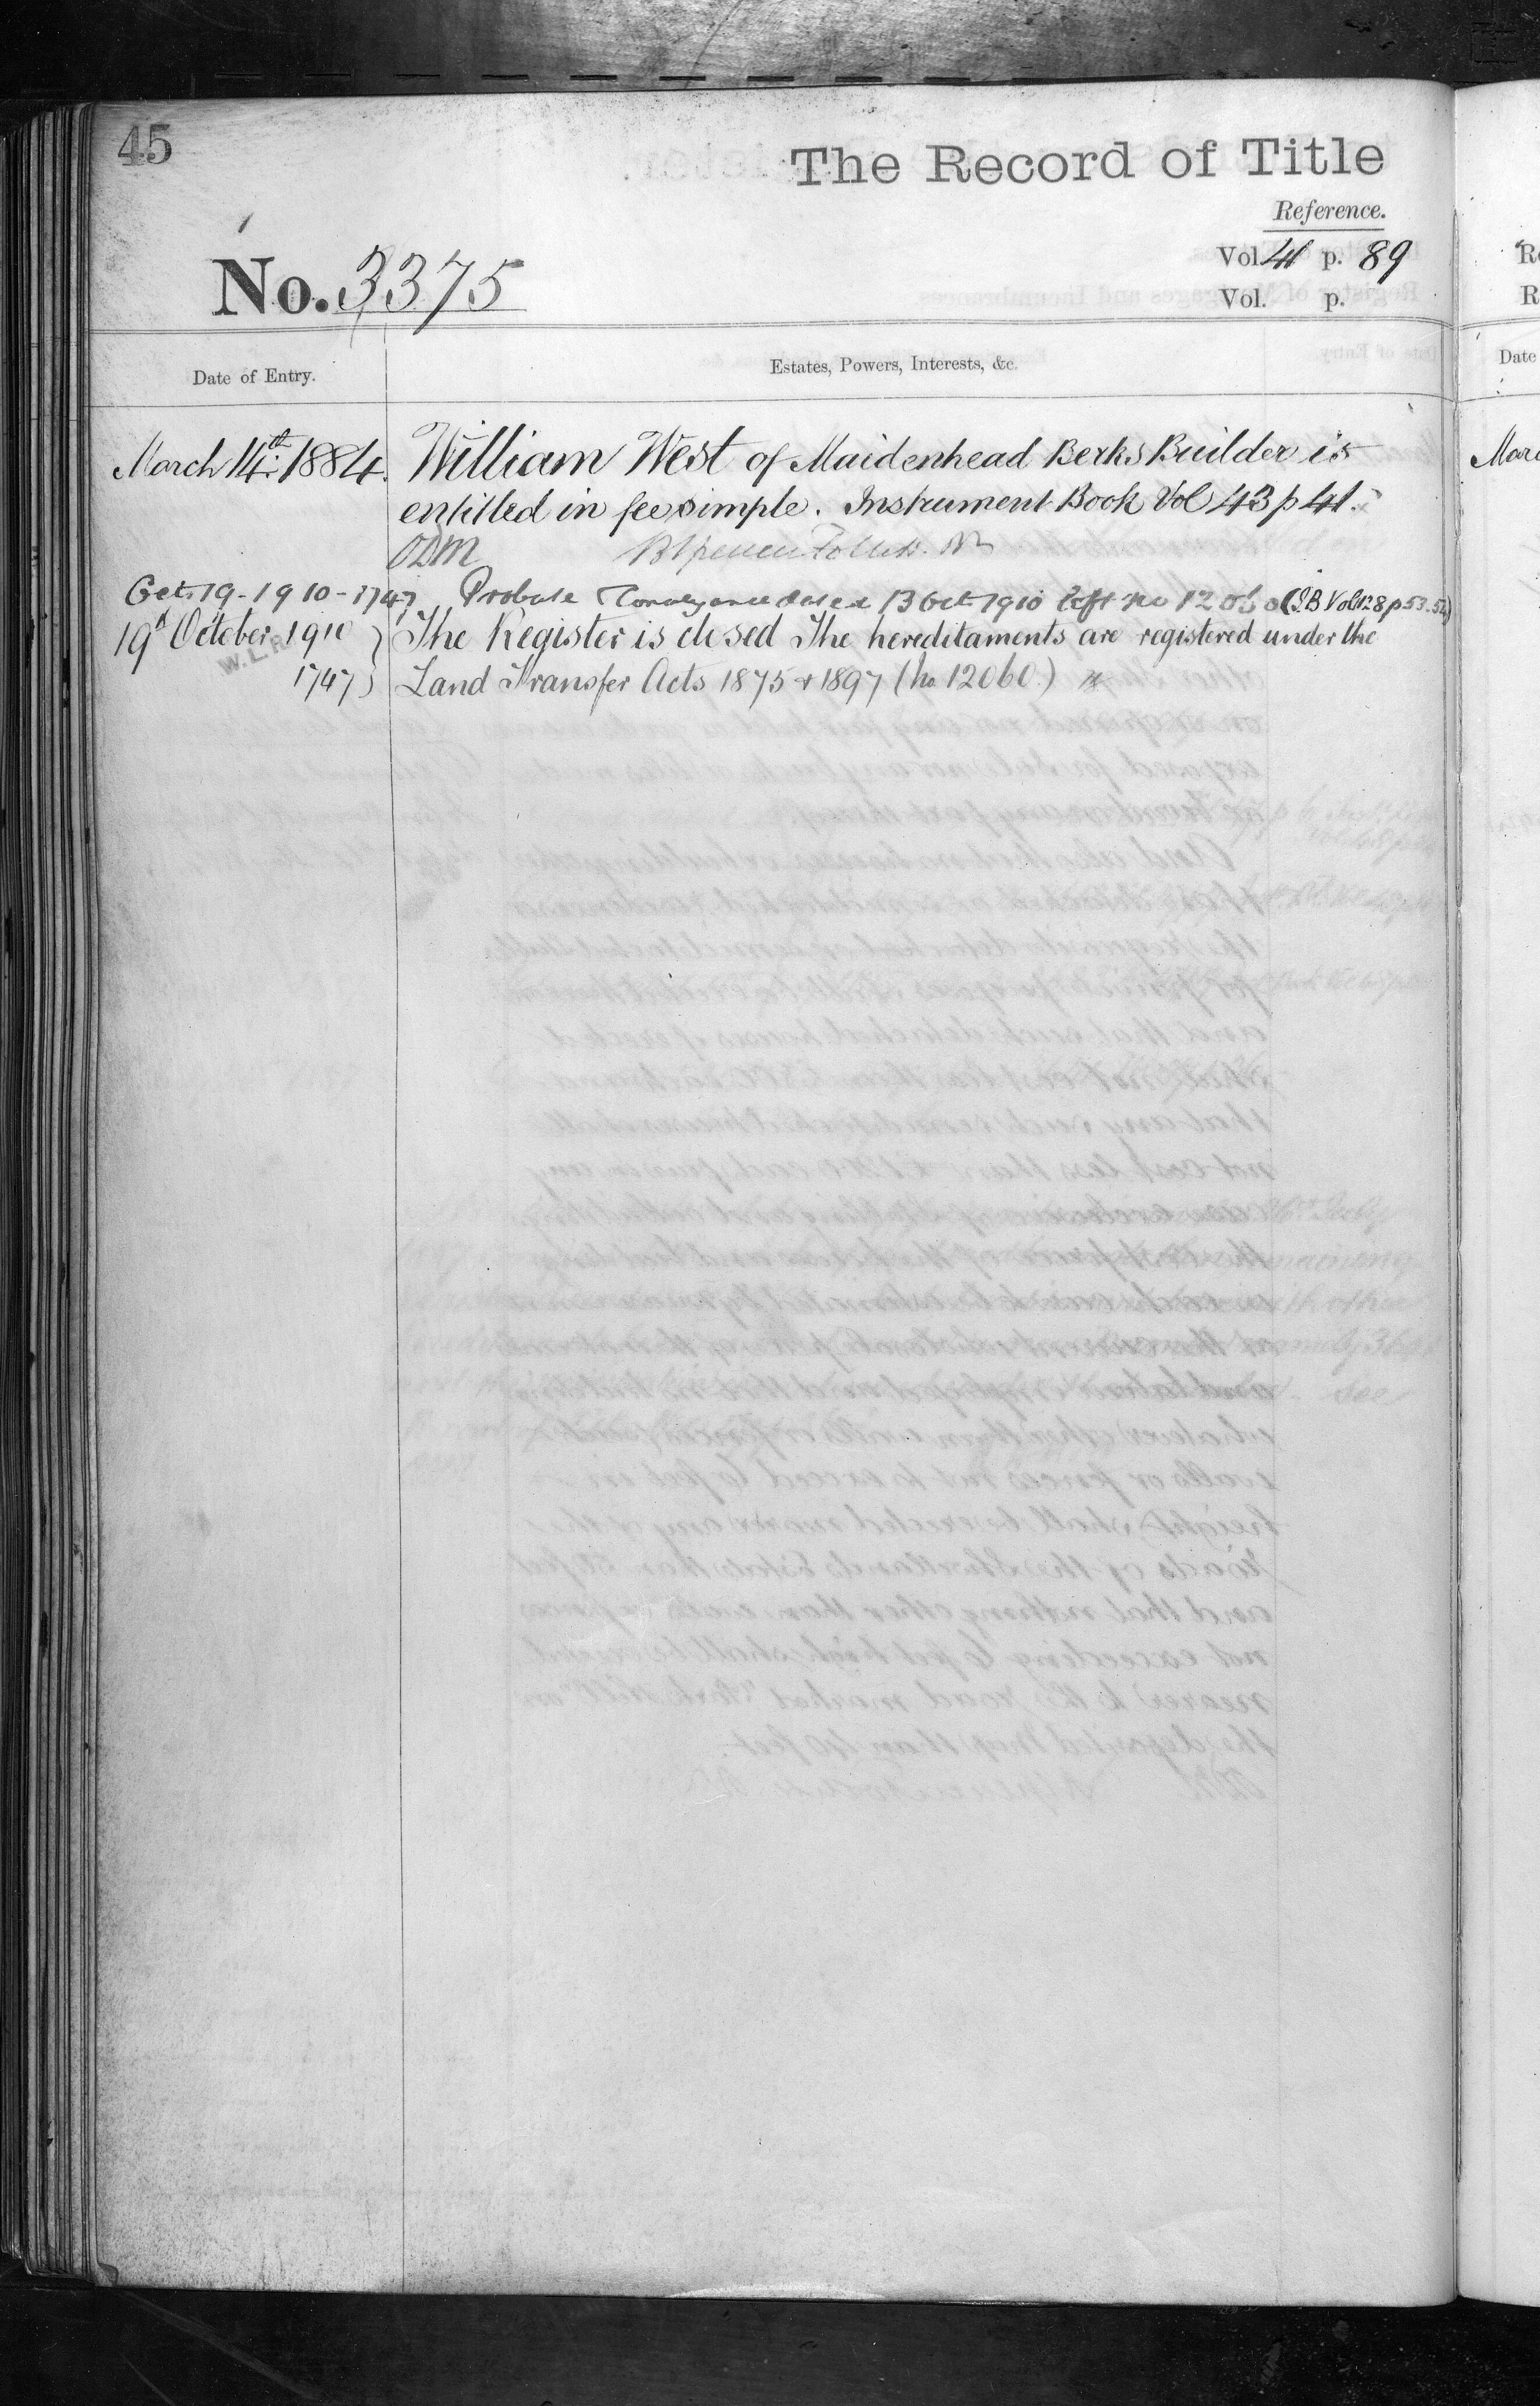 45
The Record of Title
Reference.
Vol. 41 p. 89
No. 3375
Vol. p.
Date of Entry.
Estates, Powers, Interests, &c.
March 14th 1884. William West of Maidenhead Berks Builder is
entitled in fee simple. Instrument Book Vol 43 p 41.
ODM
Oct. 19 - 1910 - 1747 Probate Conveyance dated 13 Oct 1910 (I.B Vol 128 p 53.54)
19th October 1910 The Register is closed The hereditaments are registered under the
W.L.R.
1747 Land Transfer Acts 1875 & 1897 (No 12060.)
Date